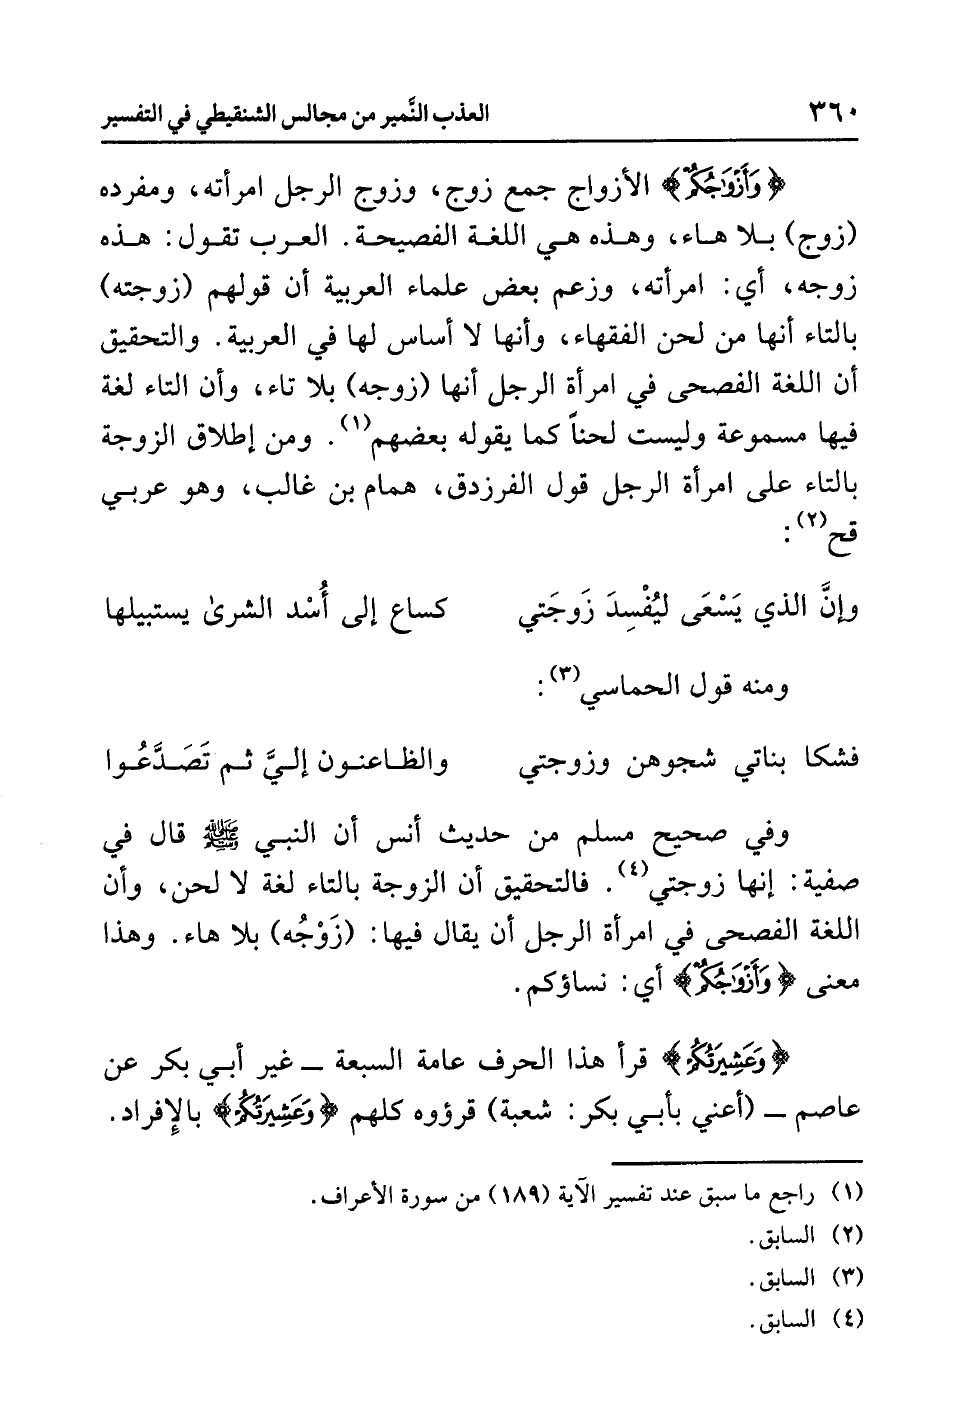 ٣٦٠ العذب النَّمير من مجالس الشنقيطي في التفسير
﴿وَأَزْوَٰجُكُمْ﴾ الأزواج جمع زوج، وزوج الرجل امرأته، ومفرده
(زوج) بلا هاء، وهذه هي اللغة الفصيحة. العرب تقول: هذه
زوجه، أي: امرأته، وزعم بعض علماء العربية أن قولهم (زوجته)
بالتاء أنها من لحن الفقهاء، وأنها لا أساس لها في العربية. والتحقيق
أن اللغة الفصحى في امرأة الرجل أنها (زوجه) بلا تاء، وأن التاء لغة
فيها مسموعة وليست لحناً كما يقوله بعضهم(١). ومن إطلاق الزوجة
بالتاء على امرأة الرجل قول الفرزدق، همام بن غالب، وهو عربي
قح(٢):
وإنَّ الذي يَسْعَى ليُفْسِدَ زَوجَتي كساع إلى أُسْد الشرىٰ يستبيلها
ومنه قول الحماسي(٣):
فشكا بناتي شجوهن وزوجتي والظاعنون إليَّ ثم تَصَدَّعُوا
وفي صحيح مسلم من حديث أنس أن النبي ﷺ قال في
صفية: إنها زوجتي(٤). فالتحقيق أن الزوجة بالتاء لغة لا لحن، وأن
اللغة الفصحى في امرأة الرجل أن يقال فيها: (زَوْجُه) بلا هاء. وهذا
معنى ﴿وَأَزْوَٰجُكُمْ﴾ أي: نساؤكم.
﴿وَعَشِيرَتُكُمْ﴾ قرأ هذا الحرف عامة السبعة ــ غير أبي بكر عن
عاصم ــ (أعني بأبي بكر: شعبة) قرؤوه كلهم ﴿وَعَشِيرَتُكُمْ﴾ بالإِفراد.
(١) راجع ما سبق عند تفسير الآية (١٨٩) من سورة الأعراف.
(٢) السابق.
(٣) السابق.
(٤) السابق.